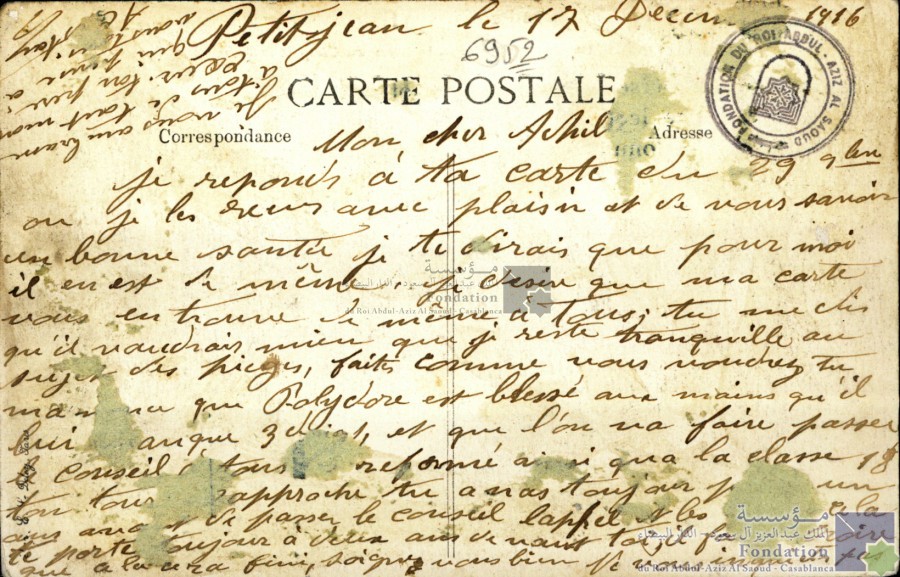 Petitjean le 17 Decem 1916
6952
CARTE POSTALE
Correspondance
Adresse
FONDATION DU ROI ABDUL-AZIZ AL SAOUD
Mon cher Achil
je reponds à ta carte du 29 9bre
ou je les recus avec plaisir et de vous savoir
en bonne santé je te dirais que pour moi
il en est de même je desire que ma carte
vous en trouve de même à tous, tu me dis
qu'il vaudrais mieu que je reste tranquille au
sujet des pieges, faites comme vous voudrez tu
que Polydore est blessé aux mains qu'il
lui manque 3 doigt, et que l'on va faire passer
le conseil à tous reformé ainsi qua la classe 18
ton tour rapproche tu auras toujour un
an avant de passer le conseil l'appel et les
te porte toujour à deux ans de vant toi il
que a la cera fini, soigne vous bien
Je vous
de tout mon
مؤسسة
الملك عبد العزيز آل سعود - الدار البيضاء
Fondation
du Roi Abdul-Aziz Al Saoud - Casablanca
مؤسسة
الملك عبد العزيز آل سعود - الدار البيضاء
Fondation
du Roi Abdul-Aziz Al Saoud - Casablanca